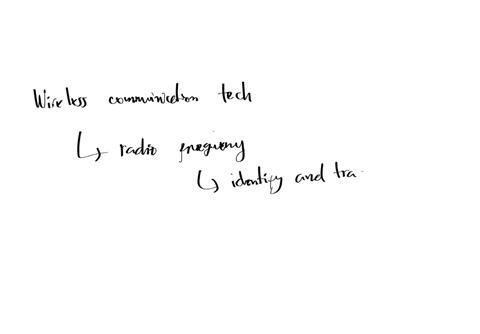 Wireless communication tech
↳ radio frequency
↳ identify and tra